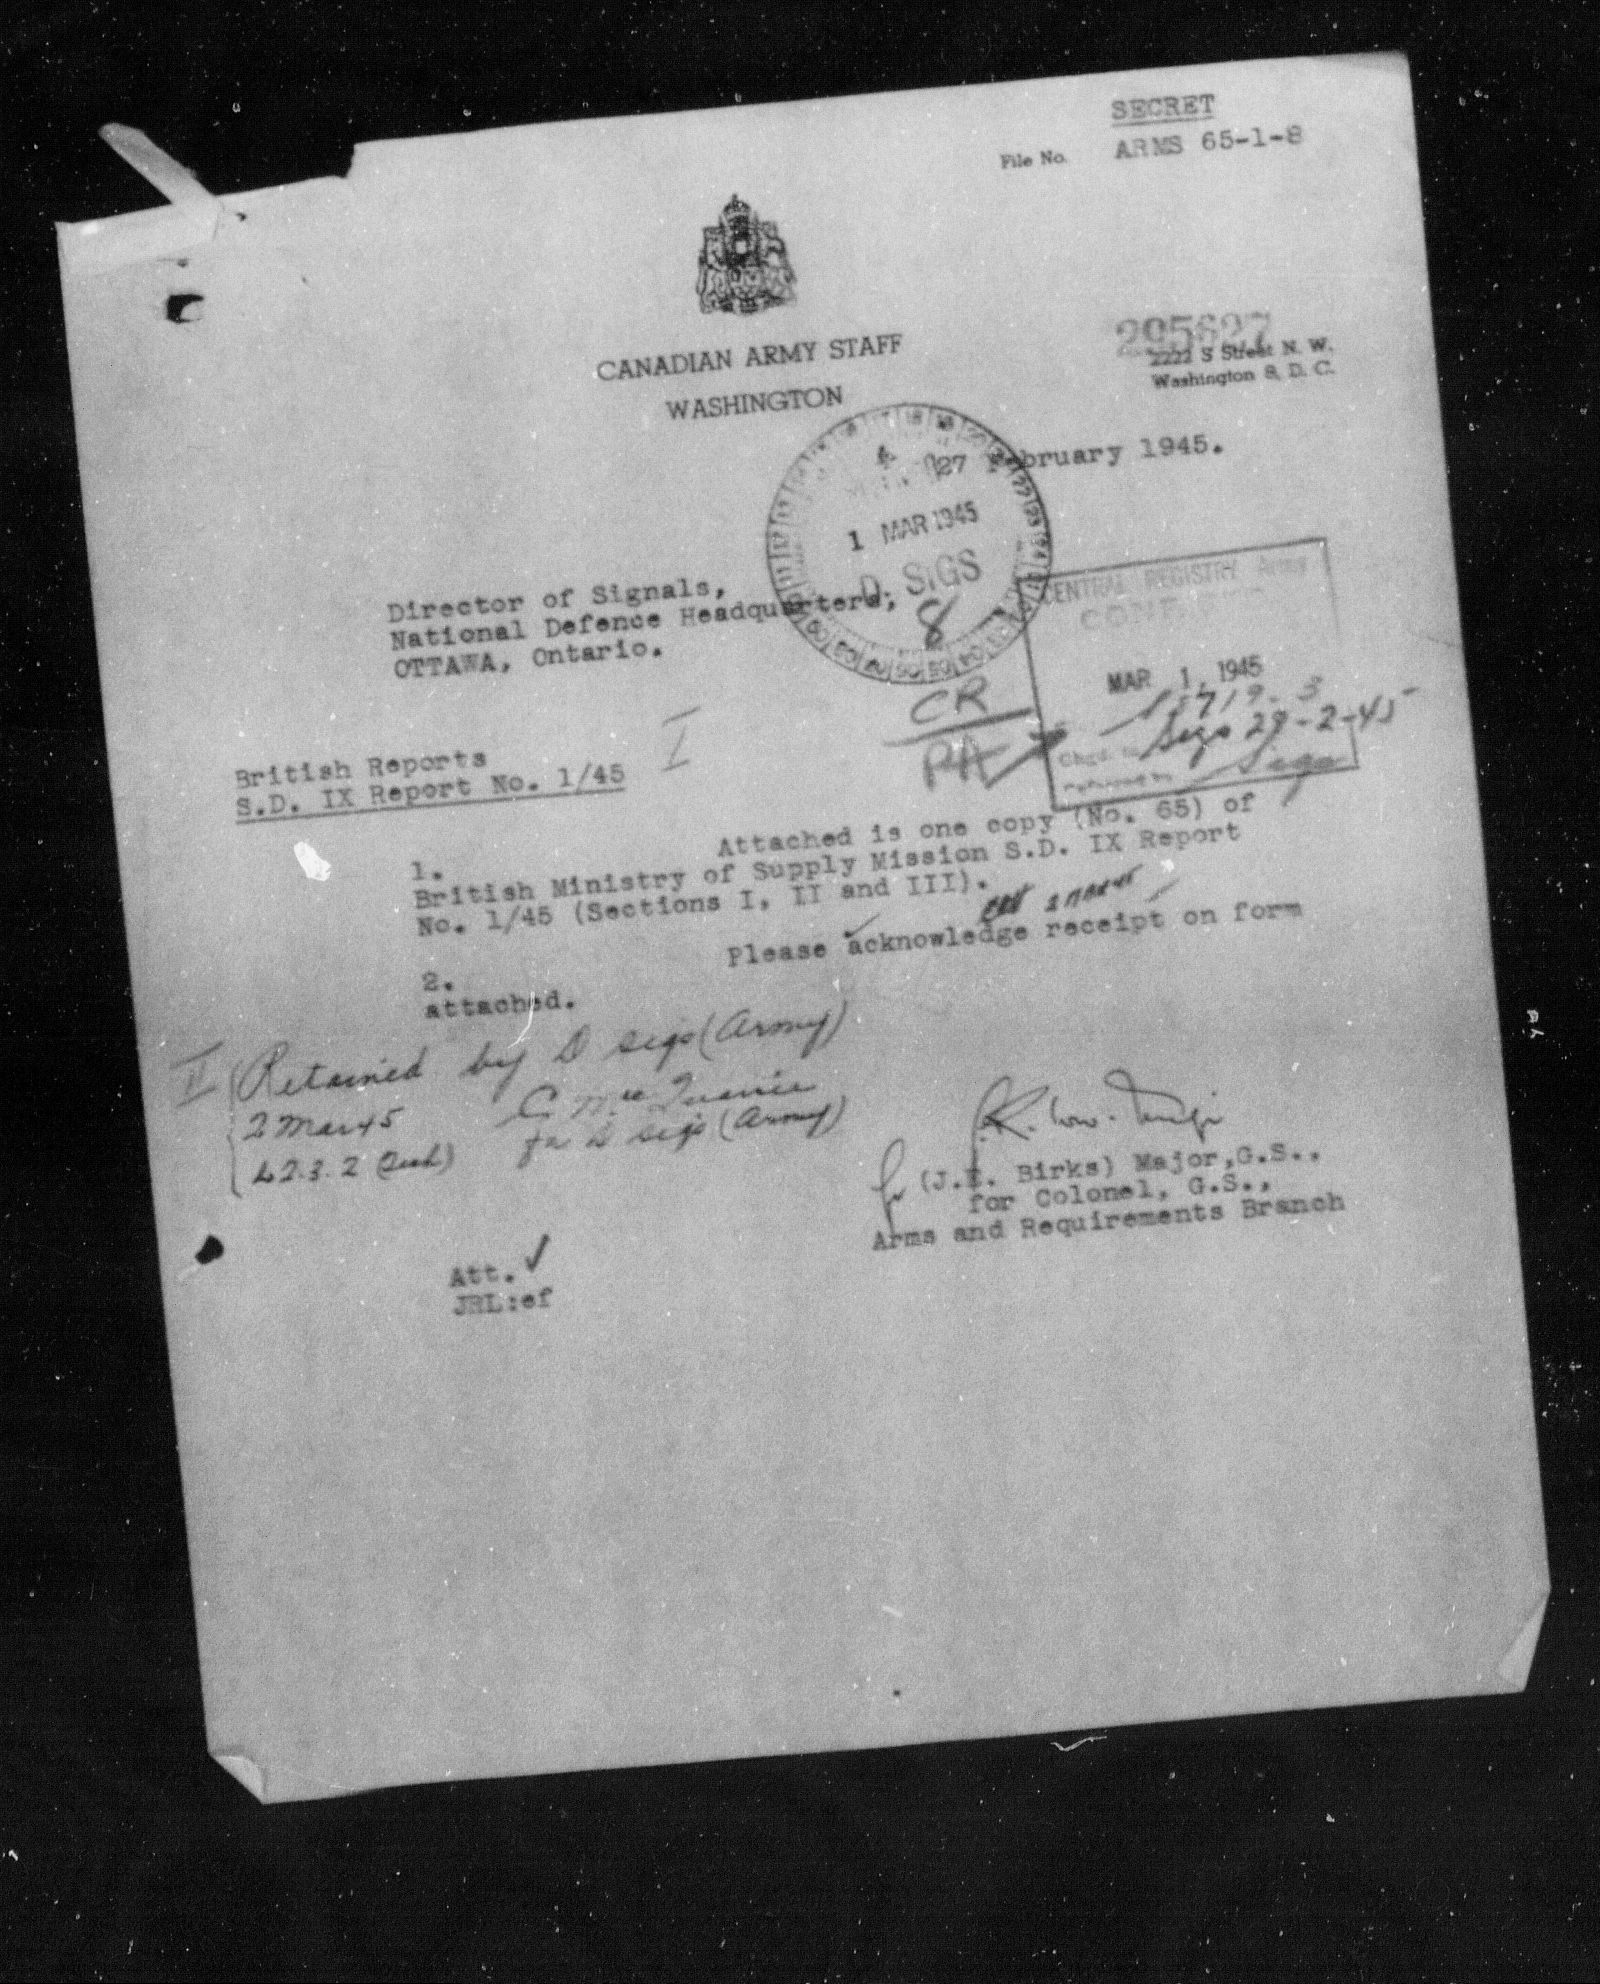 SECRET
File No. ARMS 65-1-8
CANADIAN ARMY STAFF
WASHINGTON
295627
2222 S Street N. W.
Washington 8, D. C.
27 February 1945.
1 MAR 1945
D. SIGS
8
Director of Signals,
National Defence Headquarters,
OTTAWA, Ontario.
CENTRAL REGISTRY Army
MAR 1, 1945
Sigs 29-2-45
Sigs
CR
PA
British Reports
S.D. IX Report No. 1/45
I
1. Attached is one copy (No. 65) of
British Ministry of Supply Mission S.D. IX Report
No. 1/45 (Sections I, II and III).
2. Please acknowledge receipt on form
attached.
II Retained by D Sigs (Army)
2 Mar 45
for D Sigs (Army)
for (J.E. Birks) Major, G.S.,
for Colonel, G.S.,
Arms and Requirements Branch
Att. ✓
JRL:ef